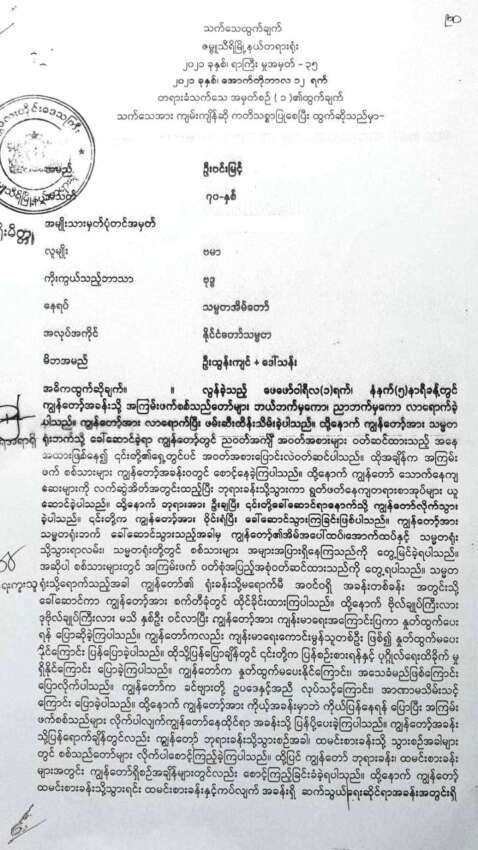 သက်သေထွက်ချက်
ဇမ္ဗူသီရိမြို့နယ်တရားရုံး
၂၀၂၁ ခုနှစ်၊ ရာကြီး မှုအမှတ် - ၃၅
၂၀၂၁ ခုနှစ်၊အောက်တိုဘာလ ၁၂ ရက်
တရားခံသက်သေ အမှတ်စဉ် ( ၁ )၏ထွက်ချက်
သက်သေအား ကျမ်းကျိန်ဆို ကတိသစ္စာပြုစေပြီး ထွက်ဆိုသည်မှာ-
အမည် ဦးဝင်းမြင့်
အသက် ၇၀-နှစ်
အမျိုးသားမှတ်ပုံတင်အမှတ်
လူမျိုး ဗမာ
ကိုးကွယ်သည့်ဘာသာ ဗုဒ္ဓ
နေရပ် သမ္မတအိမ်တော်
အလုပ်အကိုင် နိုင်ငံတော်သမ္မတ
မိဘအမည် ဦးထွန်းကျင် + ဒေါ်သန်း
အဓိကထွက်ဆိုချက်။ ။ လွန်ခဲ့သည့် ဖေဖော်ဝါရီလ(၁)ရက်၊ နံနက်(၅)နာရီခန့်တွင်
ကျွန်တော့်အခန်းသို့ အကြမ်းဖက်စစ်သည်တော်များ ဘယ်ဘက်မှကော၊ ညာဘက်မှကော လာရောက်ခဲ့
ပါသည်။ ကျွန်တော့်အား လာရောက်ပြီး ဖမ်းဆီးထိန်းသိမ်းခဲ့ပါသည်။ ထို့နောက် ကျွန်တော့်အား သမ္မတ
ရုံးဘက်သို့ ခေါ်ဆောင်ခဲ့ရာ ကျွန်တော့်တွင် ညဝတ်အင်္ကျီ အဝတ်အစားများ ဝတ်ဆင်ထားသည့် အနေ
အထားဖြစ်နေ၍ ၎င်းတို့၏ရှေ့တွင်ပင် အဝတ်အစားပြောင်းလဲဝတ်ဆင်ပါသည်။ ထိုအချိန်က အကြမ်း
ဖက် စစ်သားများ ကျွန်တော့်အခန်းဝတွင် စောင့်နေခဲ့ကြပါသည်။ ထို့နောက် ကျွန်တော် သောက်နေကျ
ဆေးများကို လက်ဆွဲအိတ်အတွင်းထည့်ပြီး ဘုရားခန်းသို့သွားကာ ရွတ်ဖတ်နေကျတရားစာအုပ်များ ယူ
ဆောင်ခဲ့ပါသည်။ ထို့နောက် ဘုရားအား ဦးချပြီး ၎င်းတို့ခေါ်ဆောင်ရာနောက်သို့ ကျွန်တော်လိုက်သွား
ခဲ့ပါသည်။ ၎င်းတို့က ကျွန်တော့်အား ဝိုင်းရံပြီး ခေါ်ဆောင်သွားကြခြင်းဖြစ်ပါသည်။ ကျွန်တော့်အား
သမ္မတရုံးဘက် ခေါ်ဆောင်သွားသည့်အခါမှ ကျွန်တော့်၏အိမ်အပေါ်ထပ်၊အောက်ထပ်နှင့် သမ္မတရုံး
သို့သွားရာလမ်း၊ သမ္မတရုံးတို့တွင် စစ်သားများ အများအပြားရှိနေကြသည်ကို တွေ့မြင်ခဲ့ရပါသည်။
အဆိုပါ စစ်သားများတွင် အကြမ်းဖက် ဝတ်စုံအပြည့်အစုံဝတ်ဆင်ထားသည်ကို တွေ့ရပါသည်။ သမ္မတ
ရုံးသို့ရောက်သည့်အခါ ကျွန်တော်၏ ရုံးခန်းသို့မရောက်မီ အဝင်ဝရှိ အခန်းတစ်ခန်း အတွင်းသို့
ခေါ်ဆောင်ကာ ကျွန်တော့်အား စက်တီခုံတွင် ထိုင်ခိုင်းထားကြပါသည်။ ထို့နောက် ဗိုလ်ချုပ်ကြီးလား
ဒုဗိုလ်ချုပ်ကြီးလား မသိ နှစ်ဦး ဝင်လာပြီး ကျွန်တော့်အား ကျန်းမာရေးအကြောင်းပြကာ နှုတ်ထွက်ပေး
ရန် ပြောဆိုခဲ့ကြပါသည်။ ကျွန်တော်ကလည်း ကျန်းမာရေးကောင်းမွန်သူတစ်ဦး ဖြစ်၍ နှုတ်ထွက်မပေး
နိုင်ကြောင်း ပြန်ပြောခဲ့ပါသည်။ ထိုသို့ပြန်ပြောချိန်တွင် ၎င်းတို့က ပြန်စဉ်းစားရန်နှင့် ပုဂ္ဂိုလ်ရေးထိခိုက် မှု
ရှိနိုင်ကြောင်း ပြောခဲ့ကြပါသည်။ ကျွန်တော်က နှုတ်ထွက်မပေးနိုင်ကြောင်း၊ အသေခံမည်ဖြစ်ကြောင်း
ပြောလိုက်ပါသည်။ ကျွန်တော်က ခင်ဗျားတို့ ဥပဒေနှင့်အညီ လုပ်သင့်ကြောင်း၊ အာဏာမသိမ်းသင့်
ကြောင်း ပြောခဲ့ပါသည်။ ထို့နောက် ကျွန်တော့်အား ကိုယ့်အခန်းမှာဘဲ ကိုယ်ပြန်နေရန် ပြောပြီး အကြမ်း
ဖက်စစ်သည်များ လိုက်ပါလျက်ကျွန်တော်နေထိုင်ရာ အခန်းသို့ ပြန်ပို့ပေးခဲ့ကြပါသည်။ ကျွန်တော့်အခန်း
သို့ပြန်ရောက်ချိန်တွင်လည်း ကျွန်တော် ဘုရားခန်းသို့သွားစဉ်အခါ၊ ထမင်းစားခန်းသို့ သွားစဉ်အခါများ
တွင် စစ်သည်တော်များ လိုက်ပါစောင့်ကြည့်ခဲ့ကြပါသည်။ ထို့ပြင် ကျွန်တော် ဘုရားခန်း၊ ထမင်းစားခန်း
များအတွင်း ကျွန်တော်ရှိစဉ်အချိန်များတွင်လည်း စောင့်ကြည့်ခြင်းခံခဲ့ရပါသည်။ ထို့နောက် ကျွန်တော့်
ထမင်းစားခန်းသို့သွားရင်း ထမင်းစားခန်းနှင့်ကပ်လျက် အခန်းရှိ ဆက်သွယ်ရေးဆိုင်ရာအခန်းအတွင်းရှိ